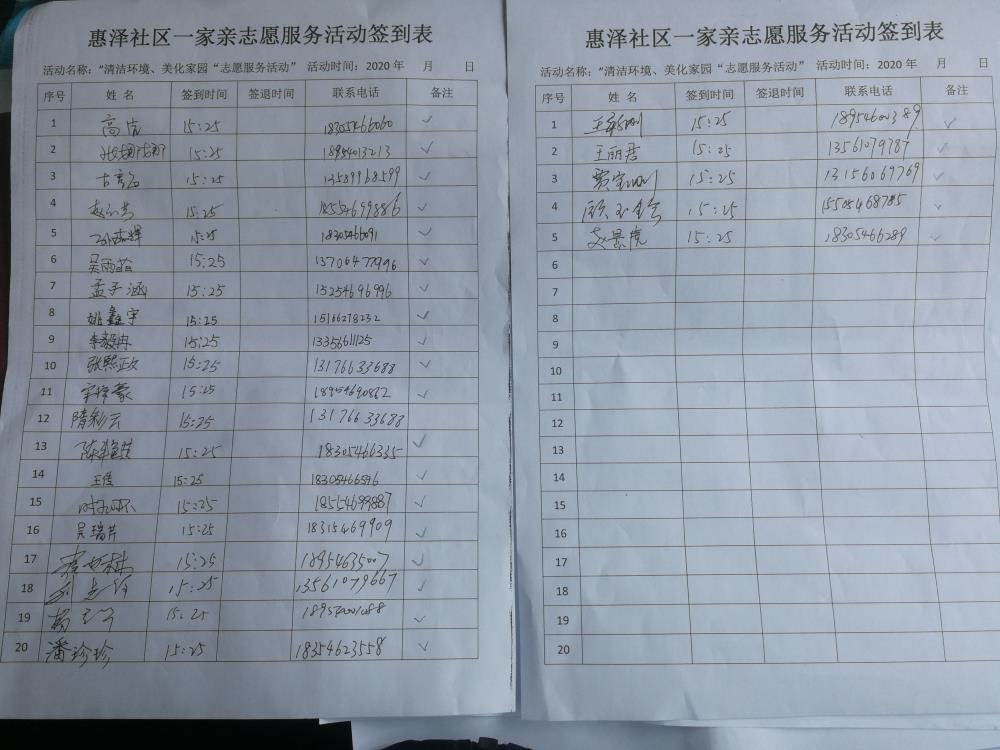 惠泽社区一家亲志愿服务活动签到表
活动名称：“清洁环境、美化家园“志愿服务活动” 活动时间：2020 年 月 日
序号 姓 名 签到时间 签退时间 联系电话 备注
1 高虎 15:25 18305466060 ✓
2 15:25 18954013213 ✓
3 15:25 13589968599 ✓
4 15:25 18554699886 ✓
5 15:25 18305466091 ✓
6 吴雨菲 15:25 13706477996 ✓
7 孟子涵 15:25 15254696996 ✓
8 姚鑫宇 15:25 15166278232 ✓
9 李毅冉 15:25 13356611125 ✓
10 张熙政 15:25 13176633688 ✓
11 15:25 18954690862 ✓
12 隋彩云 15:25 13176633688
13 15:25 18305466335 ✓
14 王倩 15:25 18305466596 ✓
15 15:25 18554699887 ✓
16 吴瑞芹 15:25 18315469909 ✓
17 15:25 18954635007 ✓
18 15:25 13561079667 ✓
19 15:25 ✓
20 潘珍珍 15:25 18354623558 ✓
惠泽社区一家亲志愿服务活动签到表
活动名称：“清洁环境、美化家园“志愿服务活动” 活动时间：2020 年 月 日
序号 姓 名 签到时间 签退时间 联系电话 备注
1 15:25 18954600389 ✓
2 王丽君 15:25 13561079787 ✓
3 15:25 13156069769 ✓
4 15:25 15505468785 ✓
5 赵景虎 15:25 18305466289 ✓
6
7
8
9
10
11
12
13
14
15
16
17
18
19
20